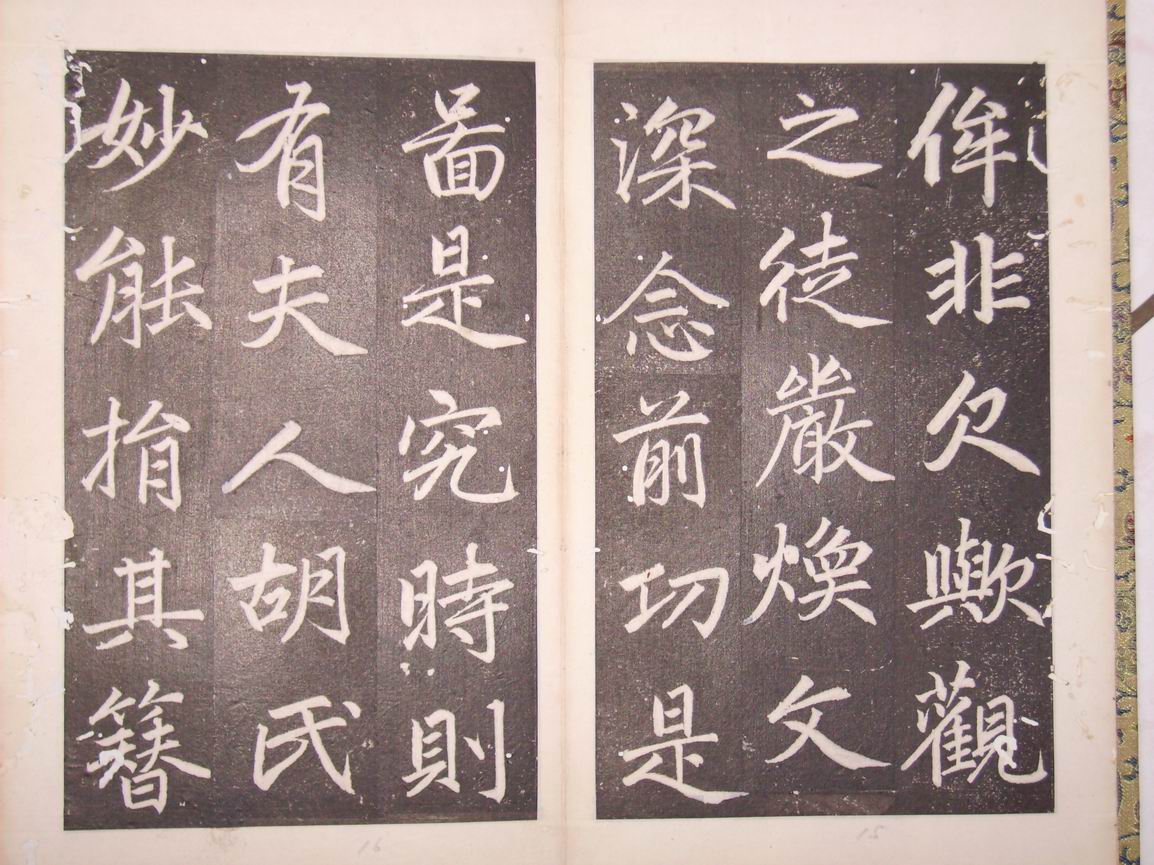 侔非欠歟觀
之徒嚴煥文
深念前功是
啚是究時則
有夫人胡氏
妙能捐其簪